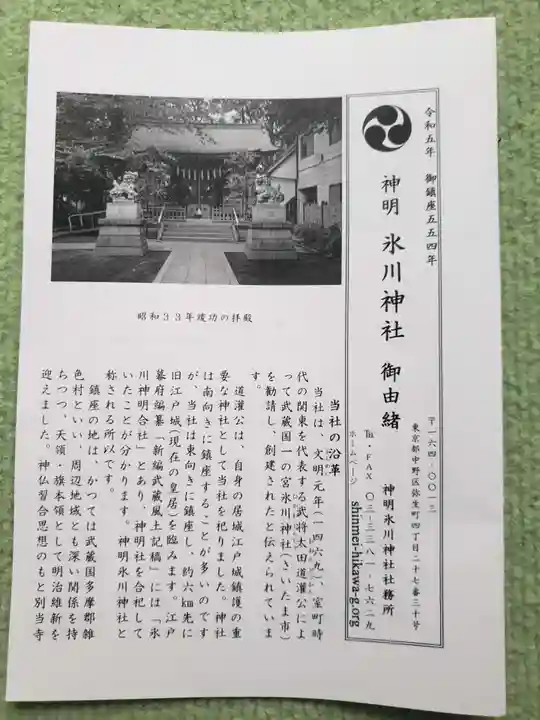 令和五年　御鎮座五五四年
神明 氷川神社 御由緒
〒一六四-〇〇一三
東京都中野区弥生町四丁目二十七番三十号
神明氷川神社社務所
℡・FAX 〇三-三三八一-七六二九
ホームページ
shinmei-hikawa-g.org
昭和３３年竣功の拝殿
当社の沿革
当社は、文明元年(一四六九)、室町時
代の関東を代表する武将太田道灌公によ
って武蔵国一の宮氷川神社(さいたま市)
を勧請し、創建されたと伝えられていま
す。
道灌公は、自身の居城江戸城鎮護の重
要な神社として当社を祀りました。神社
は南向きに鎮座することが多いのです
が、当社は東向きに鎮座し、約六km先に
旧江戸城(現在の皇居)を臨みます。江戸
幕府編纂『新編武蔵風土記稿』には「氷
川神明合社」とあり、神明社を合祀して
いたことが分かります。神明氷川神社と
称される所以です。
鎮座の地は、かつては武蔵国多摩郡雑
色村といい、周辺地域とも深い関係を持
ちつつ、天領・旗本領として明治維新を
迎えました。神仏習合思想のもと別当寺